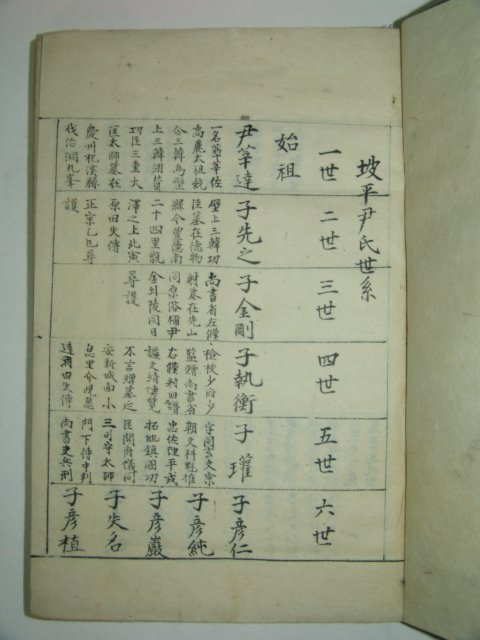 坡平尹氏世系
一世
始祖
尹莘達
一名莘華佐
高麗太祖統
合三韓爲壁
上三韓翊賛
功臣三重大
匡太師墓在
慶州杞溪縣
伐治洞九峯
二世
子先之
壁上三韓功
臣墓在德物
縣今豊德南
二十四里瓢
澤之上北寅
原旧失傳
正宗乙巳尋
護
三世
子金剛
尚書省左僕
射墓在先山
同原俗稱尹
金剛陵同日
尋護
四世
子執衡
檢校少府少
監贈尚書省
右僕射旧譜
護文靖
不言贈墓在
安新城南小
息里今
遠彌旧失傳
五世
子瓘
字同玄文宗
朝文科推
忠佐理平戎
拓地鎭國功
臣開府儀同
三司守太師
門下侍中判
尚書吏兵刑
六世
子彦仁
子彦純
子彦巖
子失名
子彦植